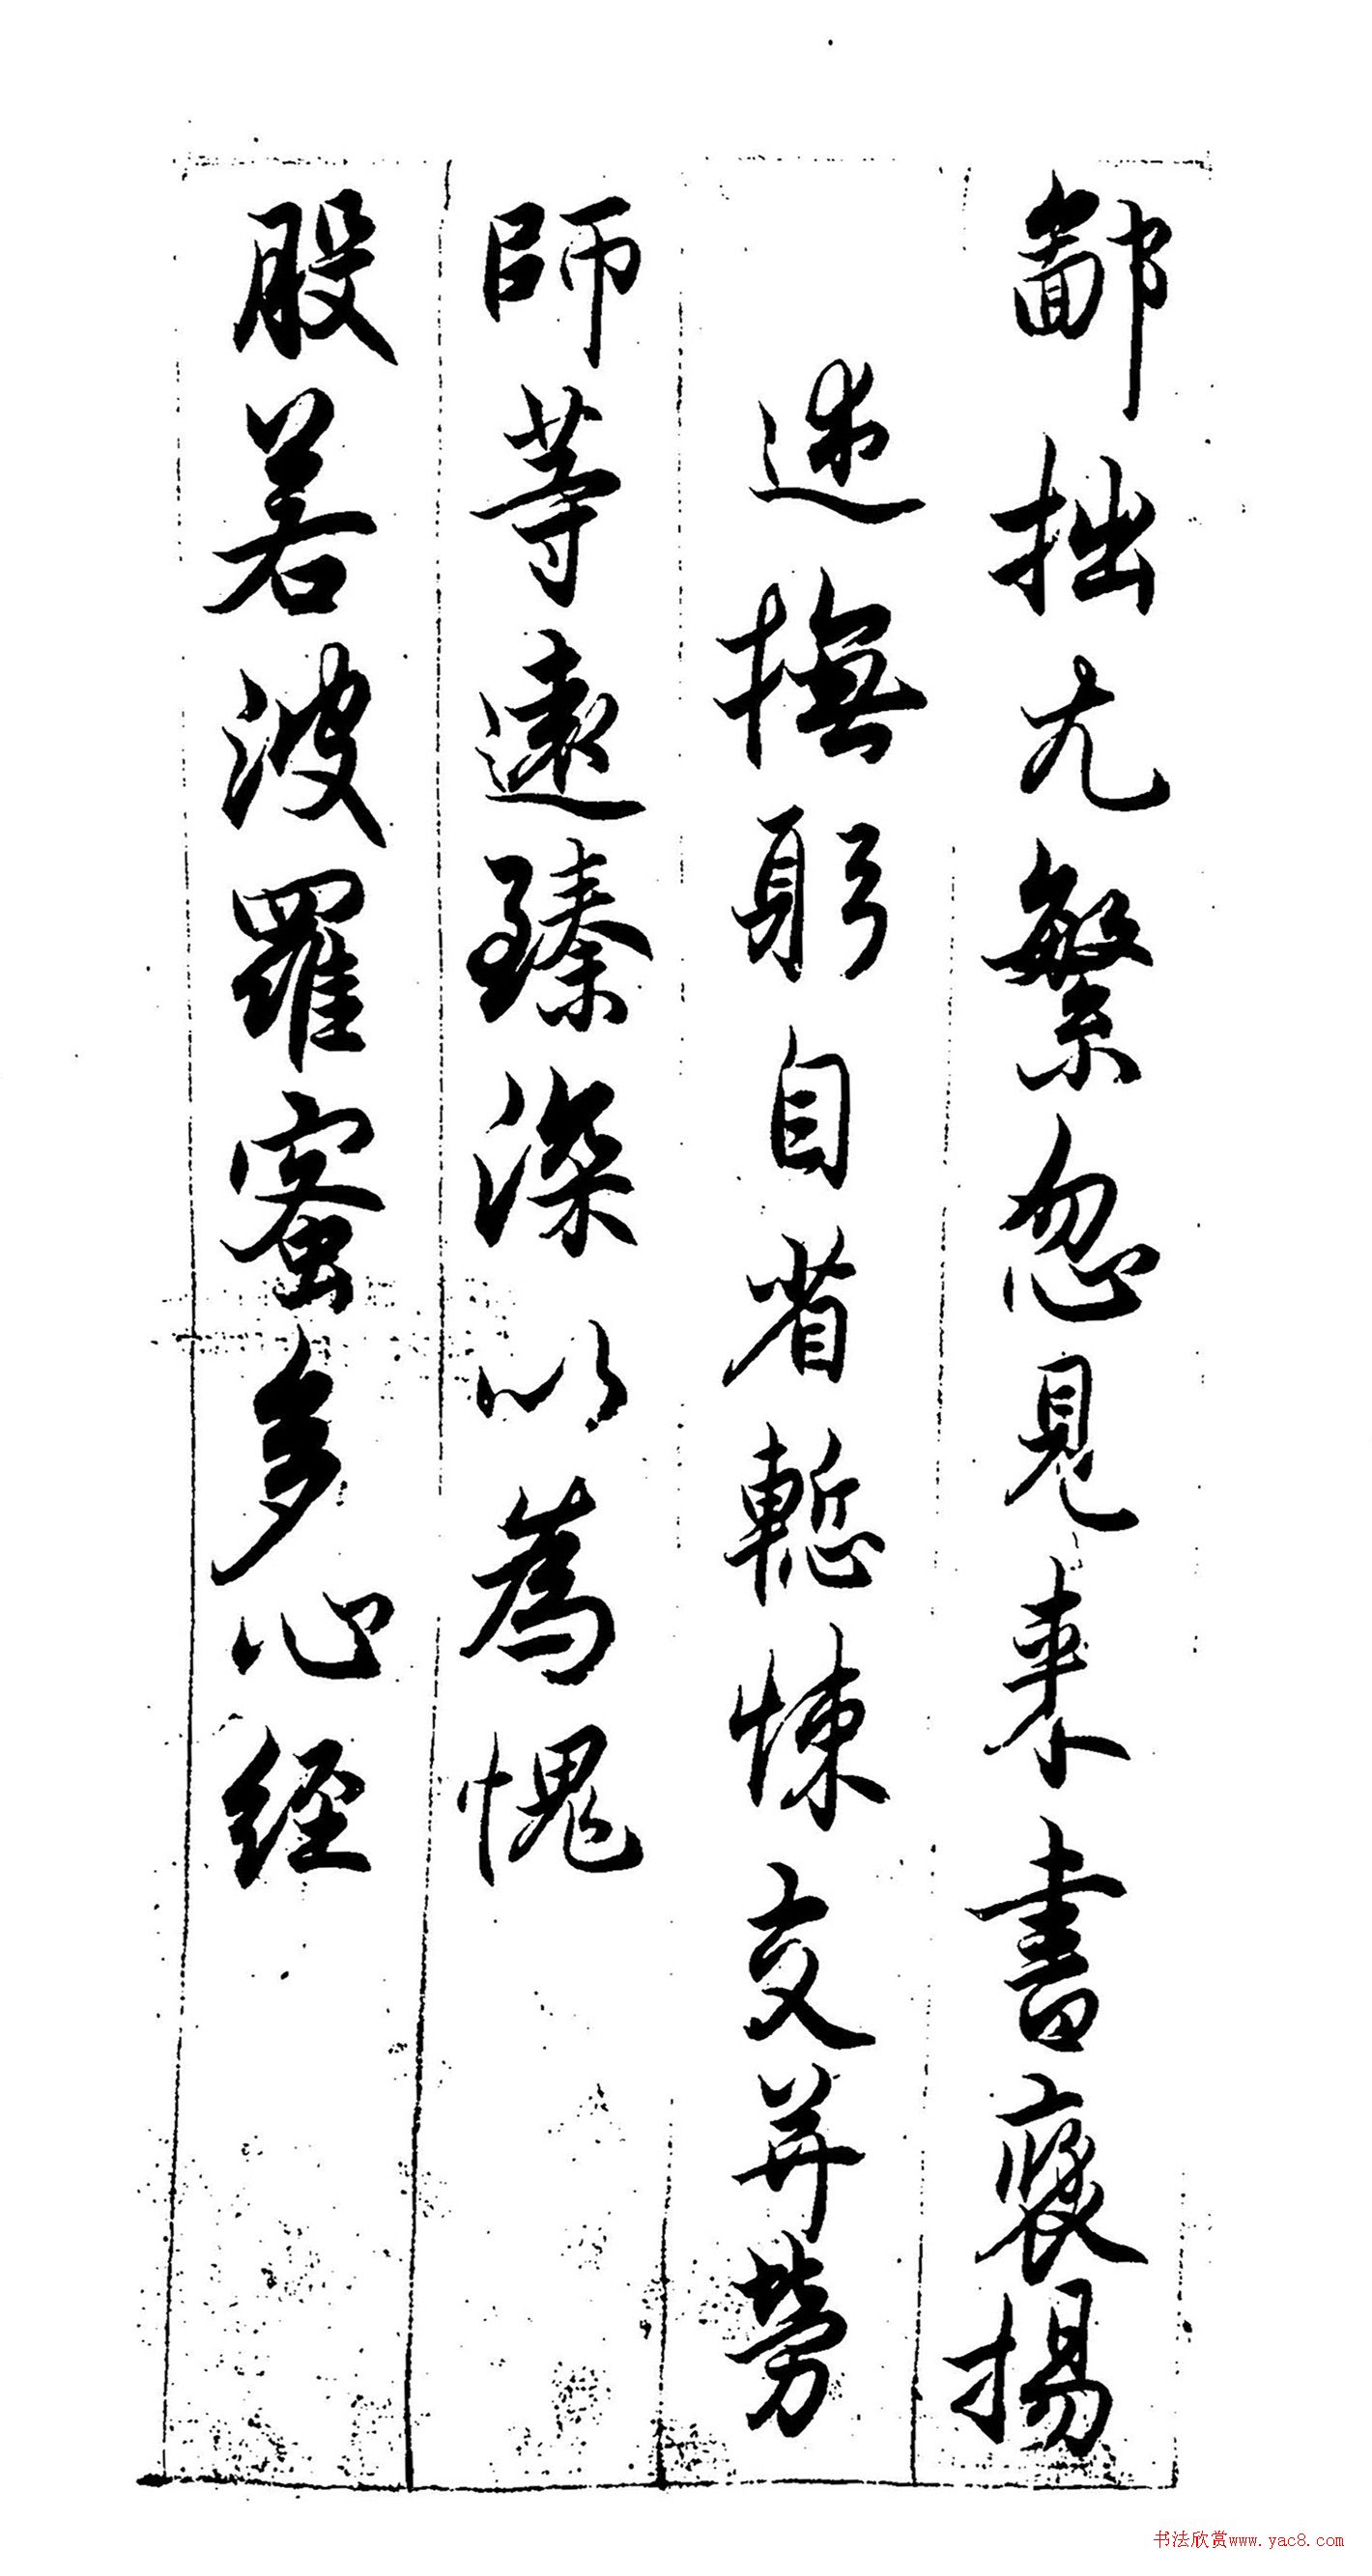 鄙拙尤繁忽見来書褒揚
述撫躬自省慙悚交并勞
師等遠臻深以為愧
般若波羅蜜多心经
书法欣赏www.yac8.com